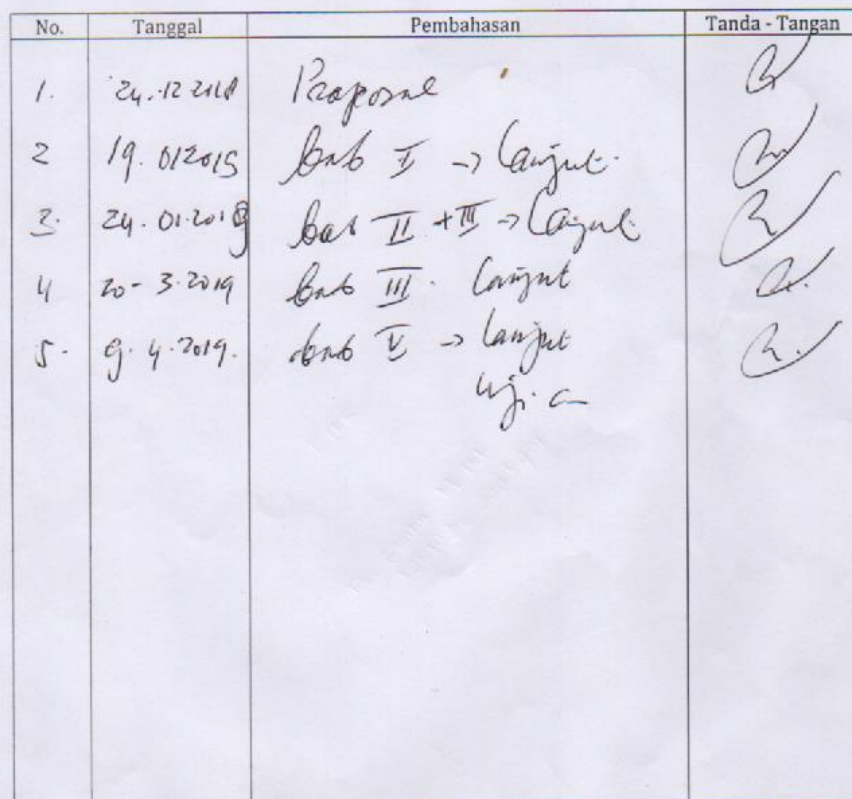 No. Tanggal Pembahasan Tanda - Tangan
1. 24.12 2018 Proposal
2 19. 012019 bab I -> Lanjut.
3. 24. 01.2019 bab II + III -> Lanjut
4 20- 3.2019 bab III. Lanjut
5. 9. 4.2019. bab V -> Lanjut
Ujian